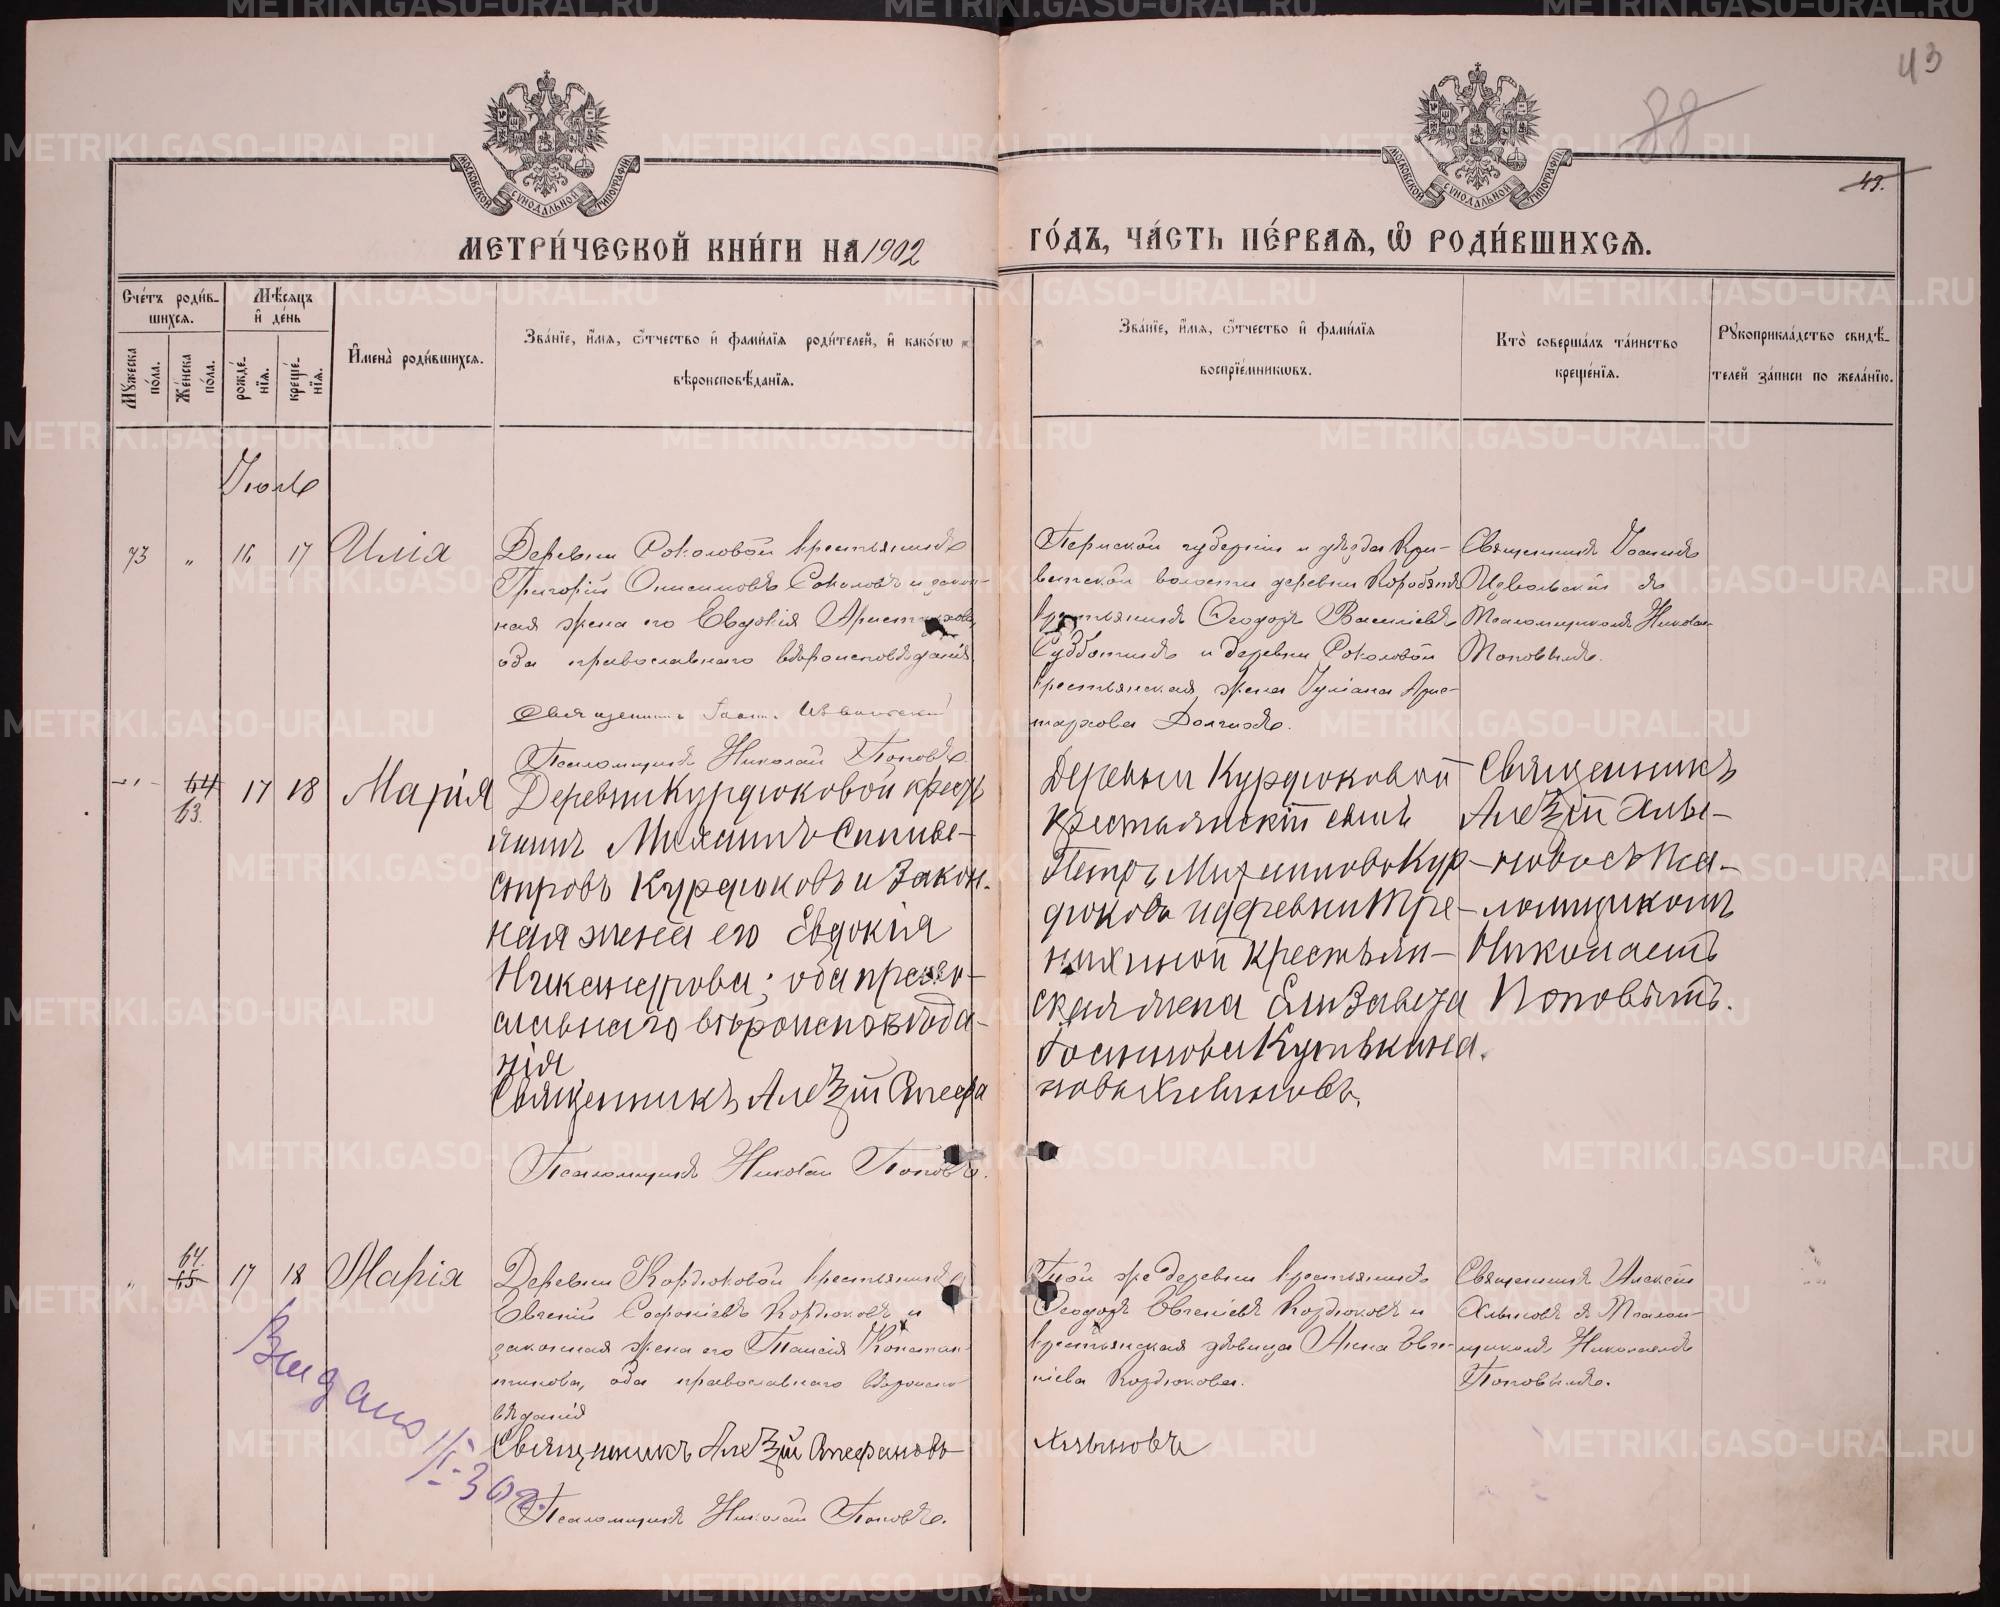 43
88
43.
МОСКОВСКОЙ СѴНОДАЛЬНОЙ ТИПОГРАФІИ
МОСКОВСКОЙ СѴНОДАЛЬНОЙ ТИПОГРАФІИ
МЕТРИ́ЧЕСКОЙ КНИ́ГИ НА 1902 ГО́ДЪ, ЧА́СТЬ ПЕ́РВАѦ, Ѽ РОДИ́ВШИХСѦ.
Сче́тъ роди́в-
шихсѧ.
Мѣ́сѧцъ
и҆ де́нь
Мꙋжеска по́ла.
Же́нска по́ла.
рожде́-
нїѧ.
креще́-
нїѧ.
И҆мена̀ роди́вшихсѧ.
Зва́нїе, и҆́мѧ, ѻ҆́тчество и҆ фами́лїѧ роди́телей, и҆ како́гѡ
вѣроисповѣ́данїѧ.
Зва́нїе, и҆́мѧ, ѻ҆́тчество и҆ фами́лїѧ
воспрїе́мникѡвъ.
Кто̀ соверша́лъ та́инство
креще́нїѧ.
Рꙋкоприкла́дство свидѣ́-
телей за́писи по жела́нїю.
Іюль
73 „ 16 17 Илія
Деревни Соколовой крестьянинъ
Григорій Онисимовъ Соколовъ и закон-
ная жена его Евдокія Аристархова,
оба православнаго вѣроисповѣданія.
Священникъ Іоаннъ
Псаломщикъ Николай Поповъ.
Пермской губерніи и уѣзда
волости деревни
крестьянинъ Ѳеодоръ Василіевъ
Субботинъ и деревни Соколовой
крестьянская жена Іуліана Арис-
тархова Долгихъ.
Священникъ Іоаннъ
съ
Псаломщикомъ Никола
Поповымъ.
64
63. 17 18 Марія
Деревни Курдюковой крест
янинъ Михаилъ Сильве-
стровъ Курдюковъ и закон-
ная жена его Евдокія
Никанорова; оба право-
славнаго вѣроисповѣда-
нія
Священникъ Алеѯій Стефа
Псаломщикъ Николай Поповъ.
Деревни Курдюковой
крестьянскій сынъ
Петръ Михаиловъ Кур-
дюковъ и деревни Тре-
нихиной крестьян-
ская жена Елизавета
Іоаннова Кутькина.
новъ Хлыновъ.
Священникъ
Алеѯій Хлы-
новъ съ Пса-
ломщикомъ
Николаемъ
Поповымъ.
„ 64.
65 17 18 Марія
Деревни Кордюковой крестьянинъ
Евгеній Софоніевъ Кордюковъ и
законная жена его Таисія Констан-
тинова, оба православнаго вѣроиспо-
вѣданія
Священникъ Алеѯій Стефановъ
Псаломщикъ Николай Поповъ.
Той же деревни крестьянинъ
Ѳеодоръ Евгеніевъ Кордюковъ и
крестьянская дѣвица Анна Евге-
ніева Кордюкова.
Хлыновъ
Священникъ Алексій
Хлыновъ съ Псалом-
щикомъ Николаемъ
Поповымъ.
Выдано
METRIKI.GASO-URAL.RU